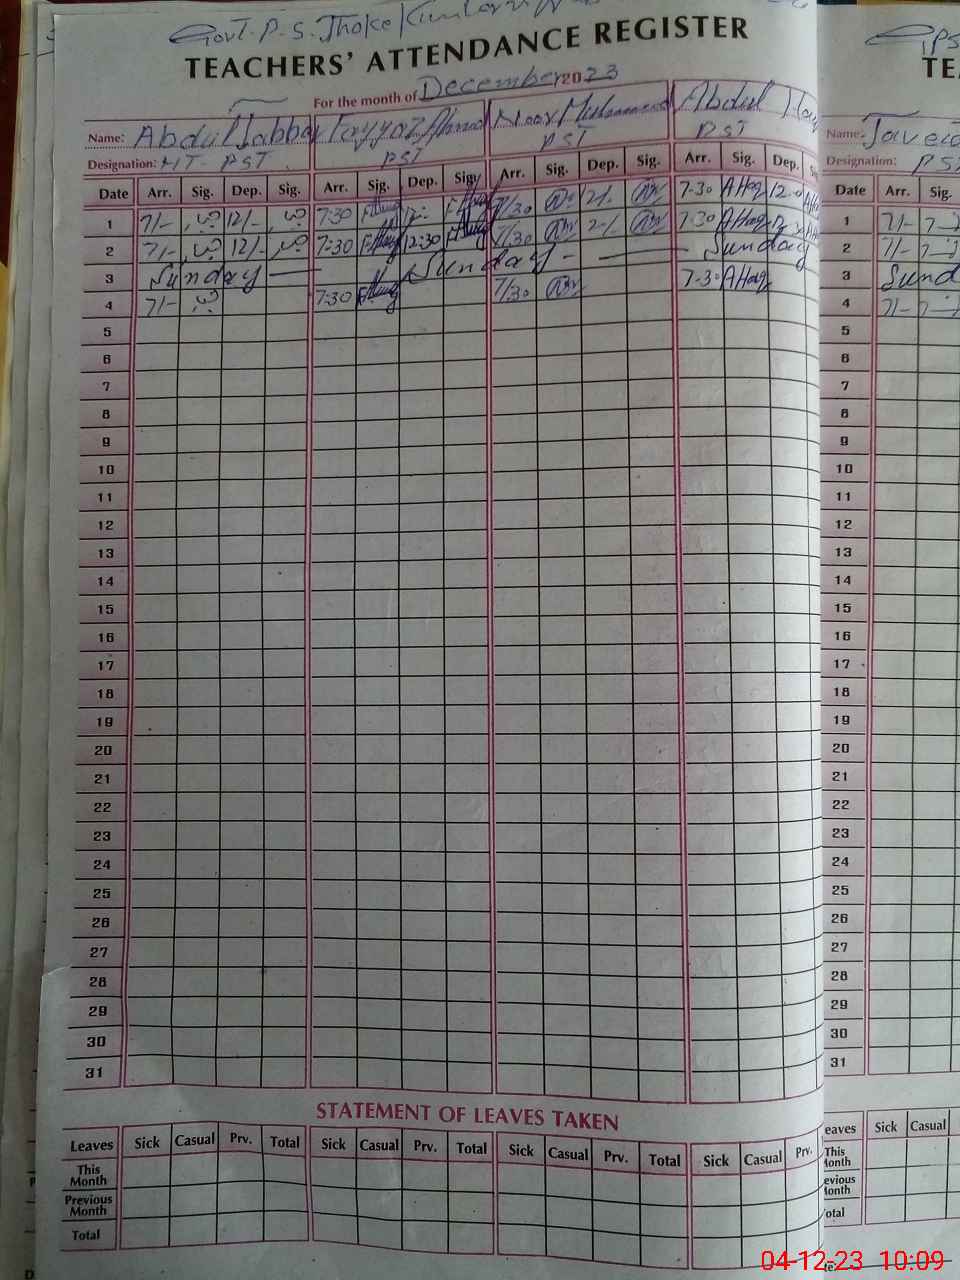 Govt. P.S. Jhoke
TEACHERS' ATTENDANCE REGISTER
For the month of December 2023
Name: Abdul Jabbar Fayyaz Ahmad Noor Muhammad Abdul
Designation: HT- PST PST PST PST
Date Arr. Sig. Dep. Sig. Arr. Sig. Dep. Sig. Arr. Sig. Dep. Sig. Arr. Sig. Dep.
1 7/- 12/- 7:30 12: 7/30 2/- 7-30 AHaq
2 7/- 12/- 7:30 12:30 7/30 2/- 7-30 AHaq
3 Sunday Sunday - Sunday
4 7/- 7:30 7/30 7-30 AHaq
5
6
7
8
9
10
11
12
13
14
15
16
17
18
19
20
21
22
23
24
25
26
27
28
29
30
31
STATEMENT OF LEAVES TAKEN
Leaves Sick Casual Prv. Total Sick Casual Prv. Total Sick Casual Prv. Total Sick Casual Prv.
This Month
Previous Month
Total
TE
Name:
Designation: PS
Date Arr. Sig.
1 7/-
2 7/-
3 Sund
4 7/-
5
6
7
8
9
10
11
12
13
14
15
16
17
18
19
20
21
22
23
24
25
26
27
28
29
30
31
eaves Sick Casual
This
Month
evious
Month
otal
04-12-23 10:09